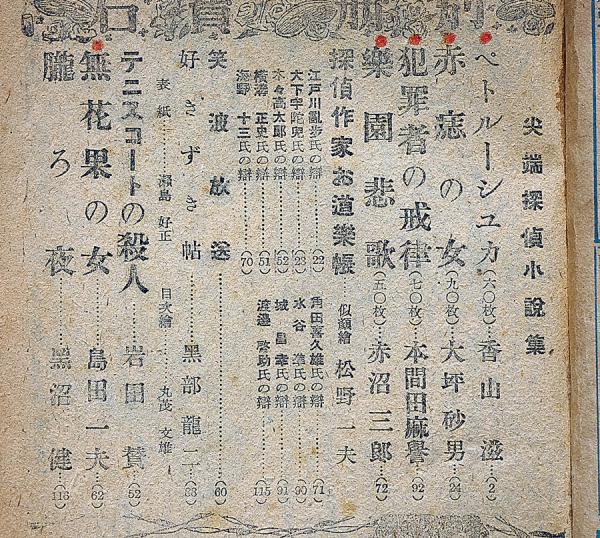 別冊
尖端探偵小說集
ペトルーシュカ(六〇枚)…香山滋(2)
赤痣の女(九〇枚)…大坪砂男(24)
犯罪者の戒律(七〇枚)…本間田麻譽(92)
樂園悲歌(五〇枚)…赤沼三郎(72)
探偵作家お道樂帳…似顔繪 松野一夫
江戸川亂步氏の辯…(22)
大下宇陀兒氏の辯…(23)
木々高太郎氏の辯…(52)
橫溝正史氏の辯…(51)
海野十三氏の辯…(70)
角田喜久雄氏の辯…(71)
水谷準氏の辯…(90)
城昌幸氏の辯…(91)
渡邊啓助氏の辯…(115)
笑波放送…(60)
好きずき帖…黑部龍二(88)
表紙…瀨島好正
目次繪…丸茂文雄
テニスコートの殺人…岩田賛(52)
無花果の女…島田一夫(62)
朧ろ夜…黑沼健(116)